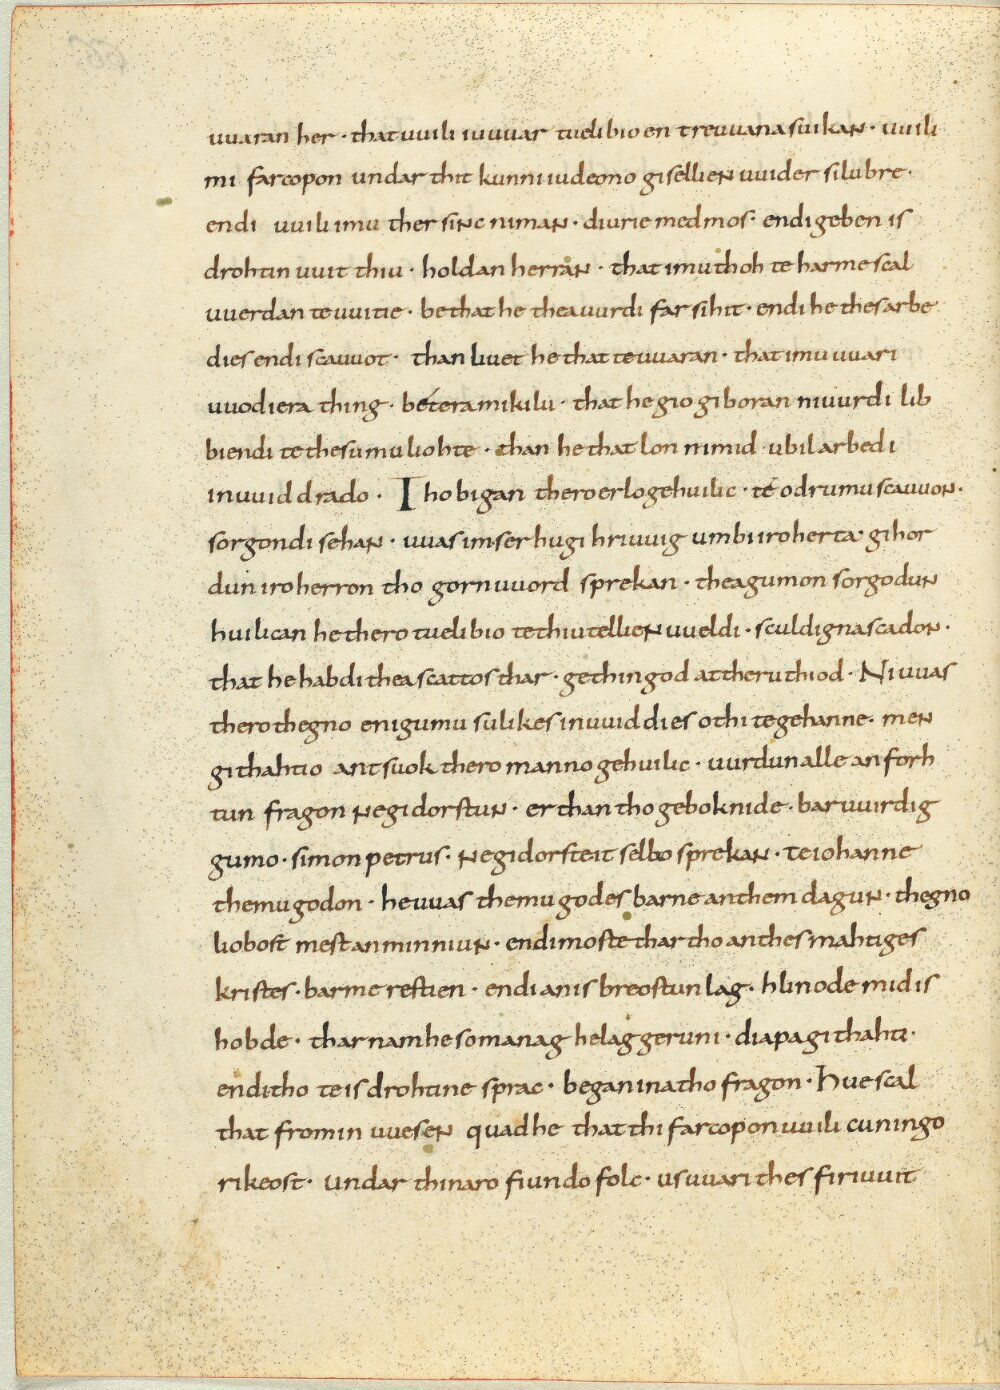 uuaran her · that uuili iuuuar tuelibio en treuuana suikan · uuili
mi farcopon undar thit kunni iudeono gisellien uuider silubre ·
endi uuili imu ther sinc niman · diurie medmos · endi geben is
drohtin uuit thiu · holdan herran · that imu thoh te harme scal
uuerdan te uuitie · be that he thea uurdi farsihit · endi he thes arbe
dies endi scauuot · than uuet he that te uuaran · that imu uuari
uuodiera thing · betera mikilu · that he gio giboran ni uurdi lib
biendi te thesumu liohte · than he that lon nimid ubil arbedi
inuuid drado · Tho bigan thero erlo gehuilic · te odrumu scauuon ·
sorgondi sehan · uuas im ser hugi hriuuig umbi iro herta · gihor
dun iro herron tho gornuuord sprekan · thea gumon sorgodun
huilican he thero tuelibio te thiu tellien uueldi · sculdigna scadon ·
that he habdi thea scattos thar · gethingod at theru thiod · Ni uuas
thero thegno enigumu sulikes inuuiddies othi te gehanne · men
githahtio antsuok thero manno gehuilic · uurdun alle an forh
tun fragon ne gidorstun · er than tho geboknide · baruuirdig
gumo · simon petrus · ne gidorste it selbo sprekan · te iohanne
themu godon · he uuas themu godes barne an them dagun · thegno
liobost mest an minniun · endi moste thar tho an thes mahtiges
kristes · barme restien · endi an is breostun lag · hlinode mid is
hobde · thar nam he so manag helag geruni · diapa githahti ·
endi tho te is drohtine sprac · began ina tho fragon · Hue scal
that fromin uuesen quad he that thi farcopon uuili cuningo
rikeost · undar thinaro fiundo folc · us uuari thes firiuuit